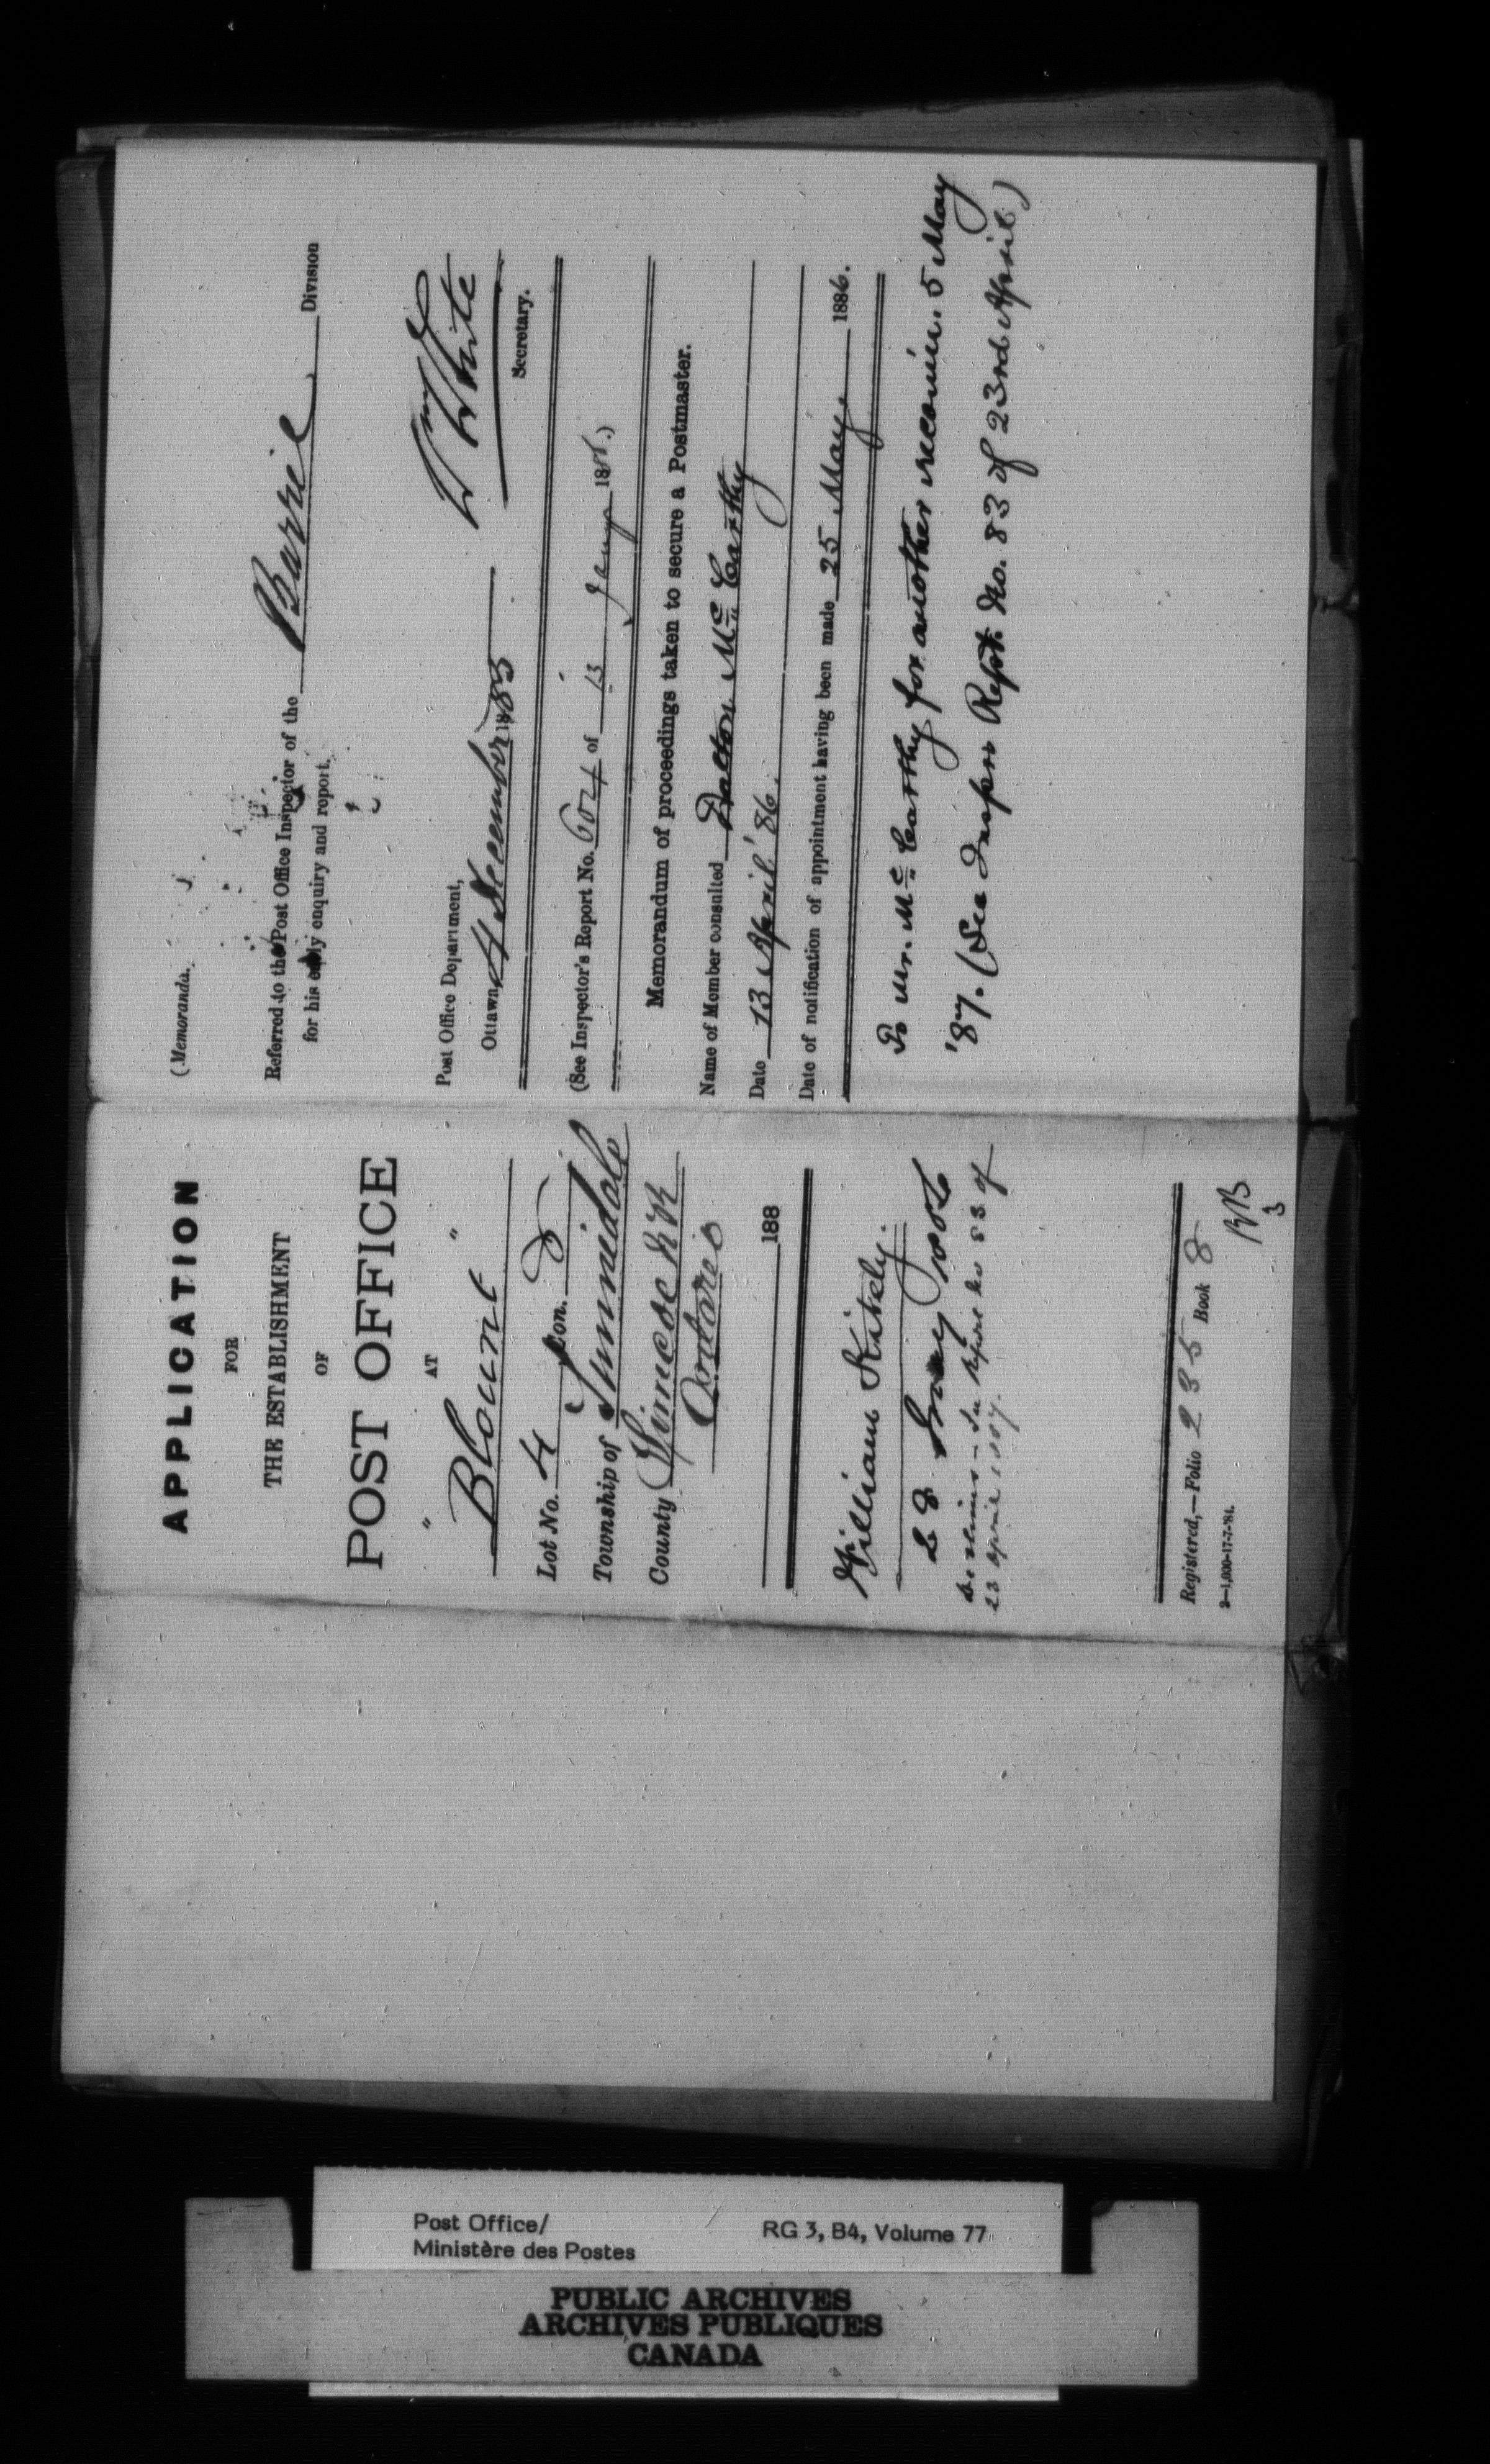 APPLICATION
FOR
THE ESTABLISHMENT
OF
POST OFFICE
AT
" Blount "
Lot No. 4 Con. 8
Township of Sunnidale
County Simcoe N R
Ontario
188
William Kitely
28 May 1886
declines – See Report No 83 of
23 April 1887.
Registered,—Folio 235 Book 8
3—1,000-17-7-'84.
(Memoranda.
Referred to the Post Office Inspector of the Barrie Division
for his early enquiry and report.
Post Office Department,
Ottawa, 4 December 1885
Wm White
Secretary.
(See Inspector's Report No. 604 of 13 Jany 1886.)
Memorandum of proceedings taken to secure a Postmaster.
Name of Member consulted Dalton McCarthy
Date 13 April '86.
Date of notification of appointment having been made 25 May 1886.
To Mr. McCarthy for another recom. 5 May
'87. (See Inspr Rept. No. 83 of 23rd April)
Post Office/
Ministère des Postes
RG 3, B4, Volume 77
PUBLIC ARCHIVES
ARCHIVES PUBLIQUES
CANADA